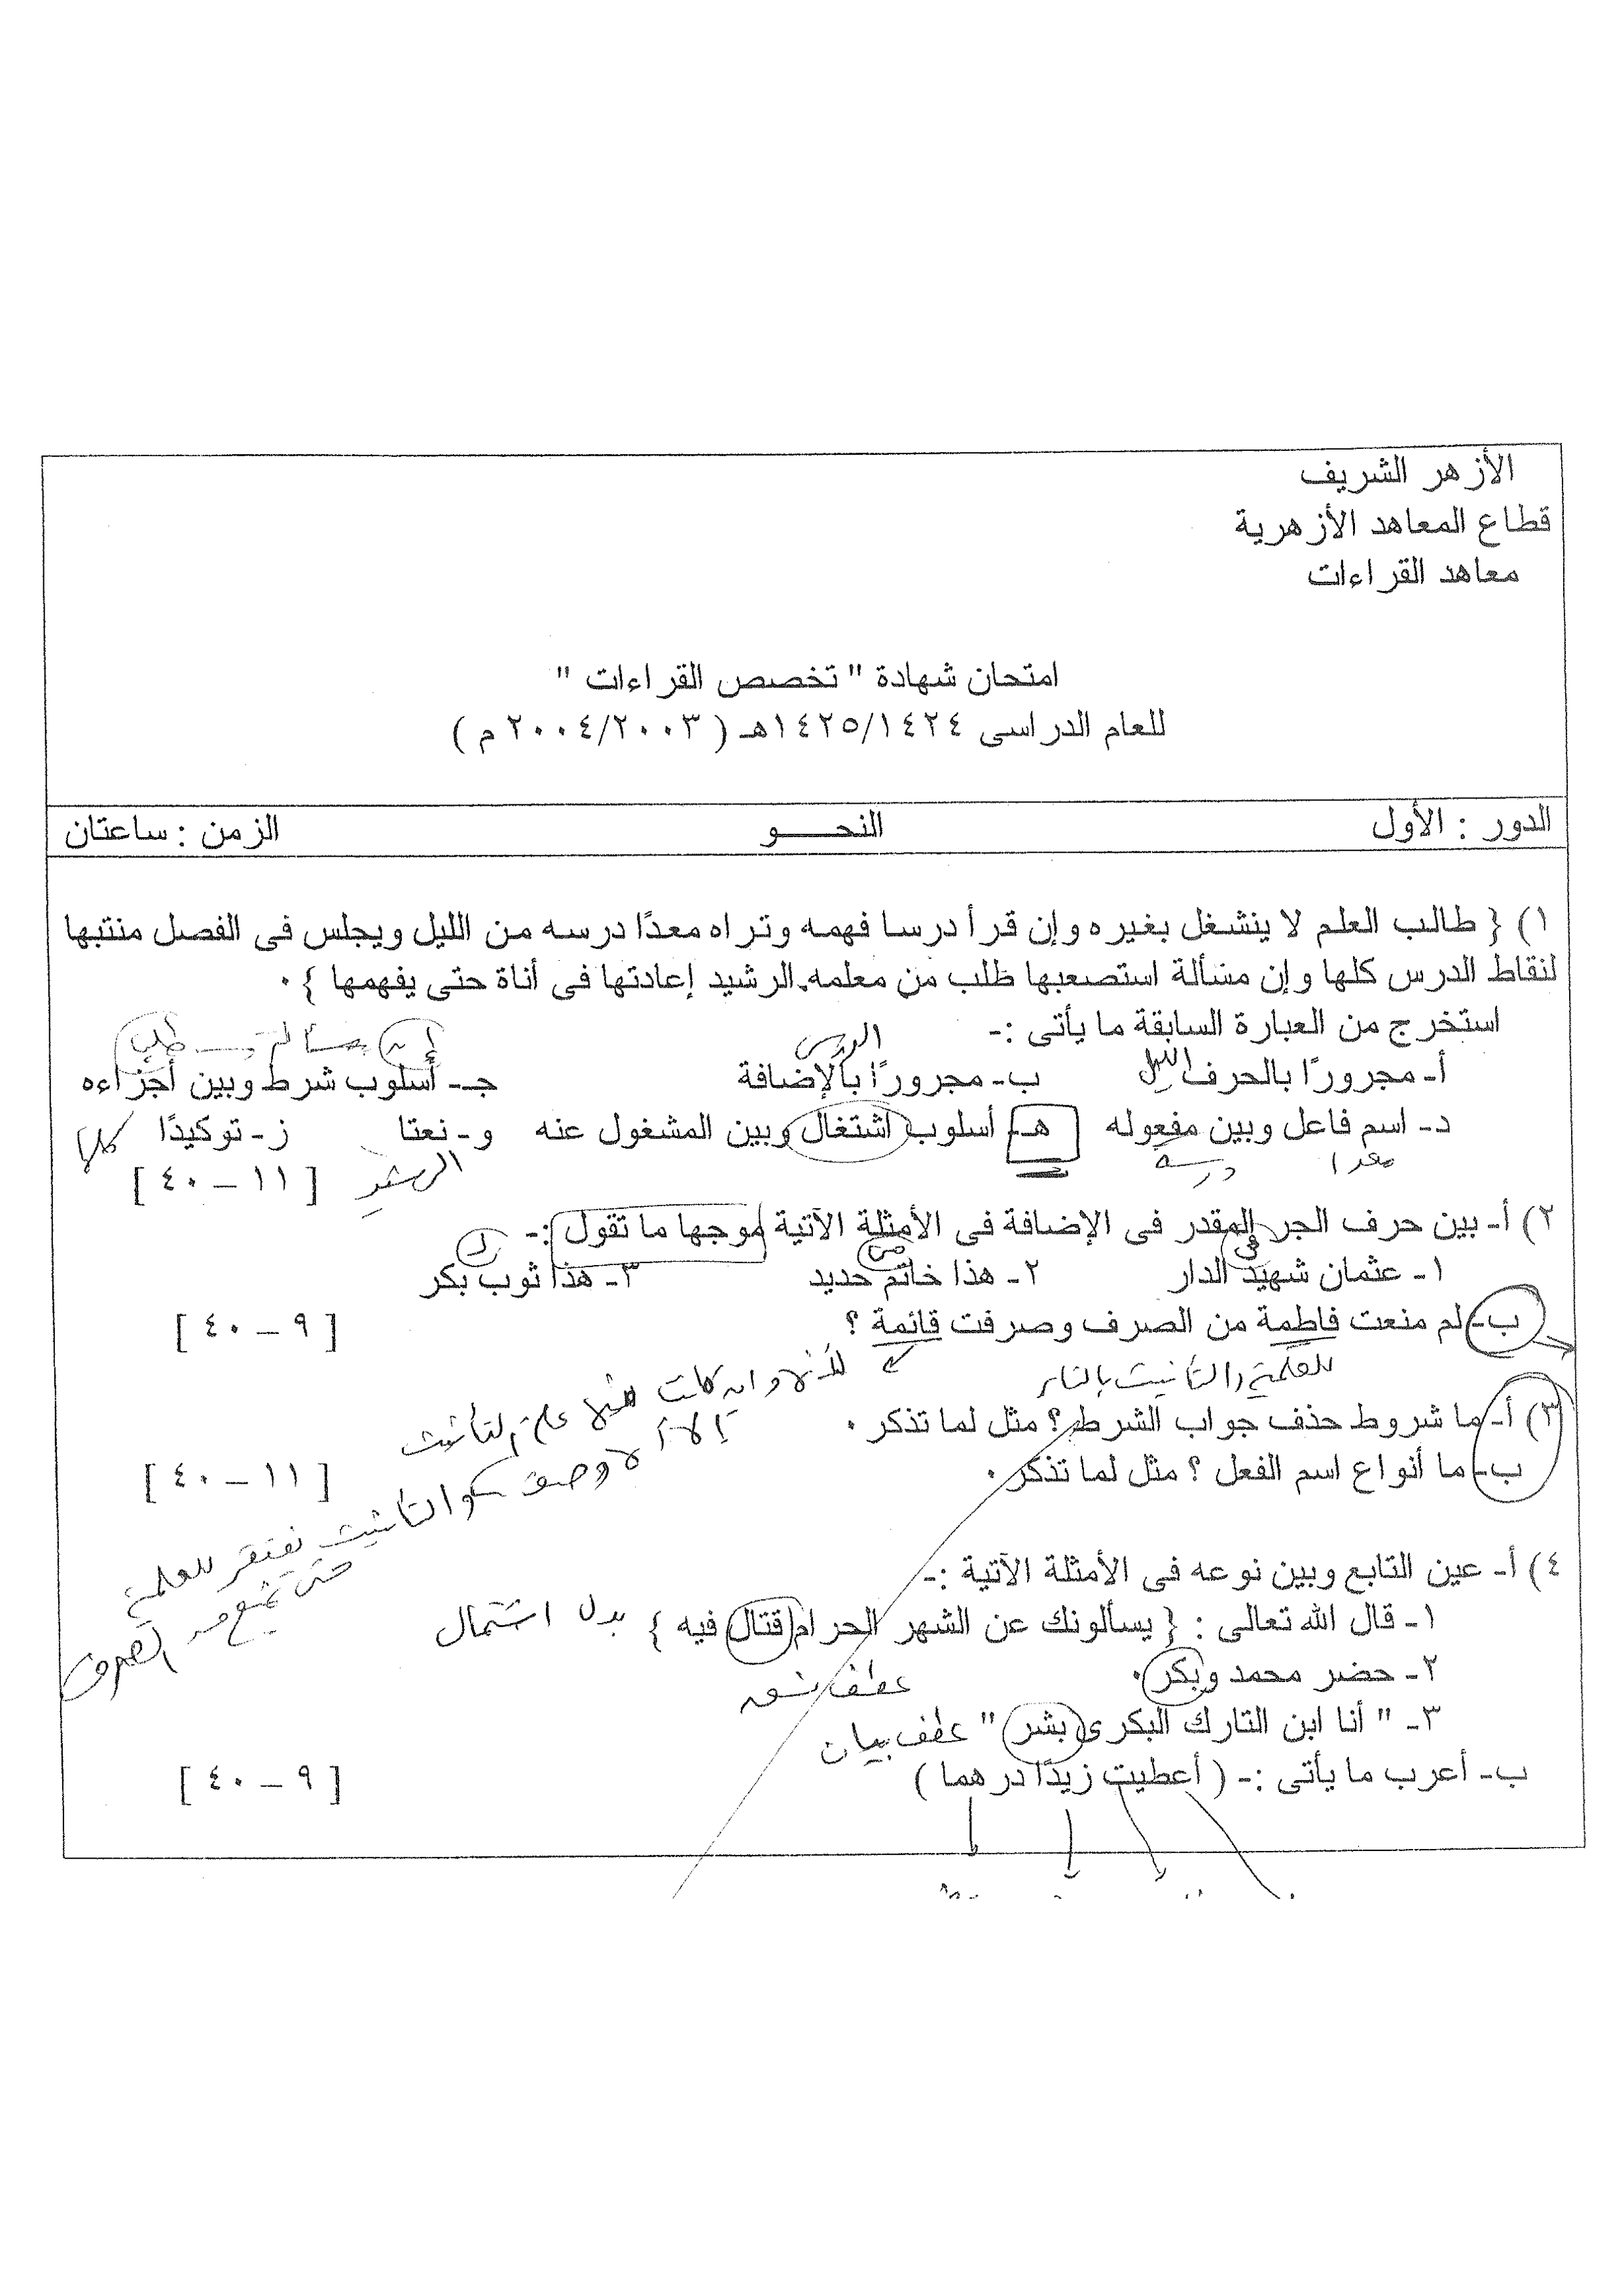 الأزهر الشريف
قطاع المعاهد الأزهرية
معاهد القراءات
امتحان شهادة " تخصص القراءات "
للعام الدراسى ١٤٢٥/١٤٢٤هـ ( ٢٠٠٤/٢٠٠٣ م )
الدور : الأول النحـــــو الزمن : ساعتان
١) { طالب العلم لا ينشغل بغيره وإن قرأ درسا فهمه وتراه معدًا درسه من الليل ويجلس فى الفصل منتبها
لنقاط الدرس كلها وإن مسألة استصعبها طلب من معلمه الرشيد إعادتها فى أناة حتى يفهمها } ٠
استخرج من العبارة السابقة ما يأتى :-
الدرس إن مسألة طلب
أ- مجرورًا بالحرف الليل ب- مجرورًا بالإضافة جـ- أسلوب شرط وبين أجزاءه
د- اسم فاعل وبين مفعوله هـ- أسلوب اشتغال وبين المشغول عنه و- نعتا ز- توكيدًا كلها
معدا درسه الرشيد [ ١١ – ٤٠ ]
٢) أ- بين حرف الجر المقدر فى الإضافة فى الأمثلة الآتية موجها ما تقول :-
فى من ل
١- عثمان شهيد الدار ٢- هذا خاتم حديد ٣- هذا ثوب بكر
ب- لم منعت فاطمة من الصرف وصرفت قائمة ؟ [ ٩ – ٤٠ ]
للعلمية والتأنيث بالتاء
لأنه وإن كانت علة التأنيث
إلا أن الوصف والتأنيث يفتقر للعلمية
حتى تمنع من الصرف
٣) أ- ما شروط حذف جواب الشرط ؟ مثل لما تذكر ٠
ب- ما أنواع اسم الفعل ؟ مثل لما تذكر ٠ [ ١١ – ٤٠ ]
٤) أ- عين التابع وبين نوعه فى الأمثلة الآتية :-
١- قال الله تعالى : { يسألونك عن الشهر الحرام قتال فيه } بدل اشتمال
٢- حضر محمد وبكر ٠ عطف نسق
٣- " أنا ابن التارك البكرى بشر " عطف بيان
ب- أعرب ما يأتى :- ( أعطيت زيدًا درهما ) [ ٩ – ٤٠ ]